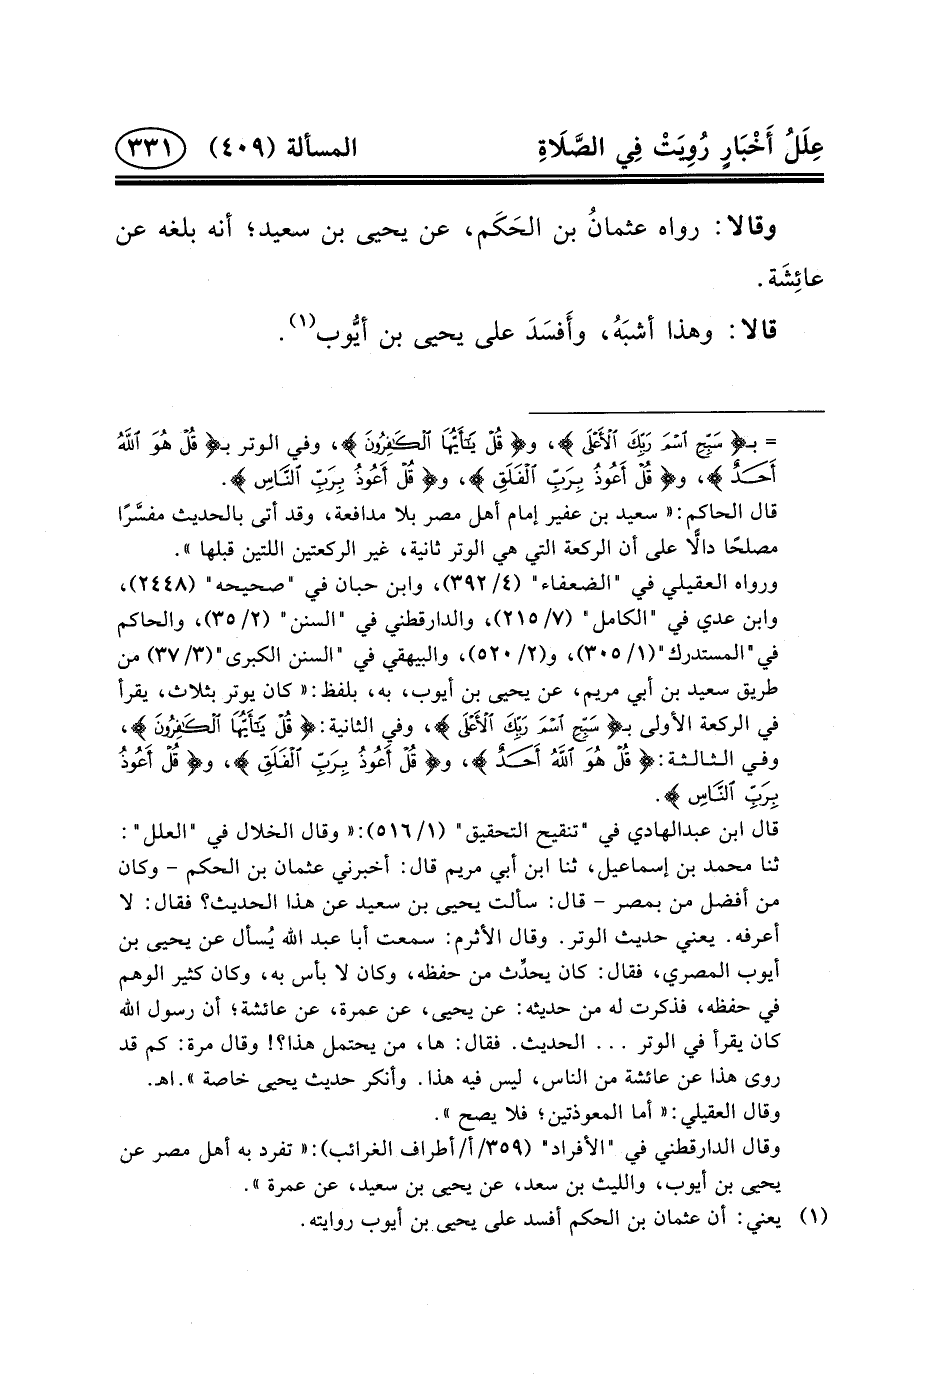 عِلَلُ أَخْبَارٍ رُوِيَتْ فِي الصَّلَاةِ المسألة (٤٠٩) ٣٣١
وقالا: رواه عثمانُ بن الحَكَم، عن يحيى بن سعيد؛ أنه بلغه عن
عائِشَة.
قالا: وهذا أشبَهُ، وأَفسَدَ على يحيى بن أيُّوب(١).
= بـ﴿ سَبِّحِ اسْمَ رَبِّكَ الْأَعْلَى ﴾، و﴿ قُلْ يَٰٓأَيُّهَا الْكَٰفِرُونَ ﴾، وفي الوتر بـ﴿ قُلْ هُوَ اللَّهُ
أَحَدٌ ﴾، و﴿ قُلْ أَعُوذُ بِرَبِّ الْفَلَقِ ﴾، و﴿ قُلْ أَعُوذُ بِرَبِّ النَّاسِ ﴾.
قال الحاكم:« سعيد بن عفير إمام أهل مصر بلا مدافعة، وقد أتى بالحديث مفسَّرًا
مصلحًا دالًّا على أن الركعة التي هي الوتر ثانية، غير الركعتين اللتين قبلها ».
ورواه العقيلي في "الضعفاء" (٤/ ٣٩٢)، وابن حبان في "صحيحه" (٢٤٤٨)،
وابن عدي في "الكامل" (٧/ ٢١٥)، والدارقطني في "السنن" (٢/ ٣٥)، والحاكم
في"المستدرك"(١/ ٣٠٥)، و(٢/ ٥٢٠)، والبيهقي في "السنن الكبرى"(٣/ ٣٧) من
طريق سعيد بن أبي مريم، عن يحيى بن أيوب، به، بلفظ:« كان يوتر بثلاث، يقرأ
في الركعة الأولى بـ﴿ سَبِّحِ اسْمَ رَبِّكَ الْأَعْلَى ﴾، وفي الثانية:﴿ قُلْ يَٰٓأَيُّهَا الْكَٰفِرُونَ ﴾،
وفي الثالثة:﴿ قُلْ هُوَ اللَّهُ أَحَدٌ ﴾، و﴿ قُلْ أَعُوذُ بِرَبِّ الْفَلَقِ ﴾، و﴿ قُلْ أَعُوذُ
بِرَبِّ النَّاسِ ﴾.
قال ابن عبدالهادي في "تنقيح التحقيق" (١/ ٥١٦):« وقال الخلال في "العلل":
ثنا محمد بن إسماعيل، ثنا ابن أبي مريم قال: أخبرني عثمان بن الحكم – وكان
من أفضل من بمصر – قال: سألت يحيى بن سعيد عن هذا الحديث؟ فقال: لا
أعرفه. يعني حديث الوتر. وقال الأثرم: سمعت أبا عبد الله يُسأل عن يحيى بن
أيوب المصري، فقال: كان يحدِّث من حفظه، وكان لا بأس به، وكان كثير الوهم
في حفظه، فذكرت له من حديثه: عن يحيى، عن عمرة، عن عائشة؛ أن رسول الله
كان يقرأ في الوتر ... الحديث. فقال: ها، من يحتمل هذا؟! وقال مرة: كم قد
روى هذا عن عائشة من الناس، ليس فيه هذا. وأنكر حديث يحيى خاصة ».اهـ.
وقال العقيلي:« أما المعوذتين؛ فلا يصح ».
وقال الدارقطني في "الأفراد" (٣٥٩/ أ/ أطراف الغرائب):« تفرد به أهل مصر عن
يحيى بن أيوب، والليث بن سعد، عن يحيى بن سعيد، عن عمرة ».
(١) يعني: أن عثمان بن الحكم أفسد على يحيى بن أيوب روايته.